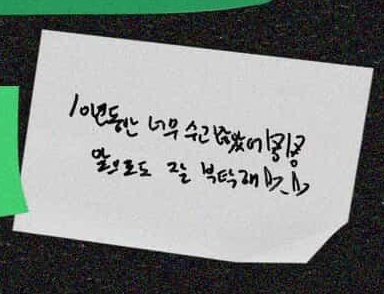 1년동안 너무 수고 많았어!!
앞으로도 잘 부탁해